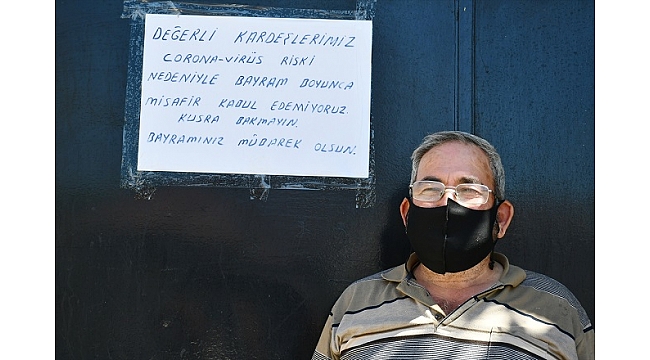 DEĞERLİ KARDEŞLERİMİZ
CORONA-VİRÜS RİSKİ
NEDENİYLE BAYRAM BOYUNCA
MİSAFİR KABUL EDEMİYORUZ.
KUSRA BAKMAYIN.
BAYRAMINIZ MÜBAREK OLSUN.